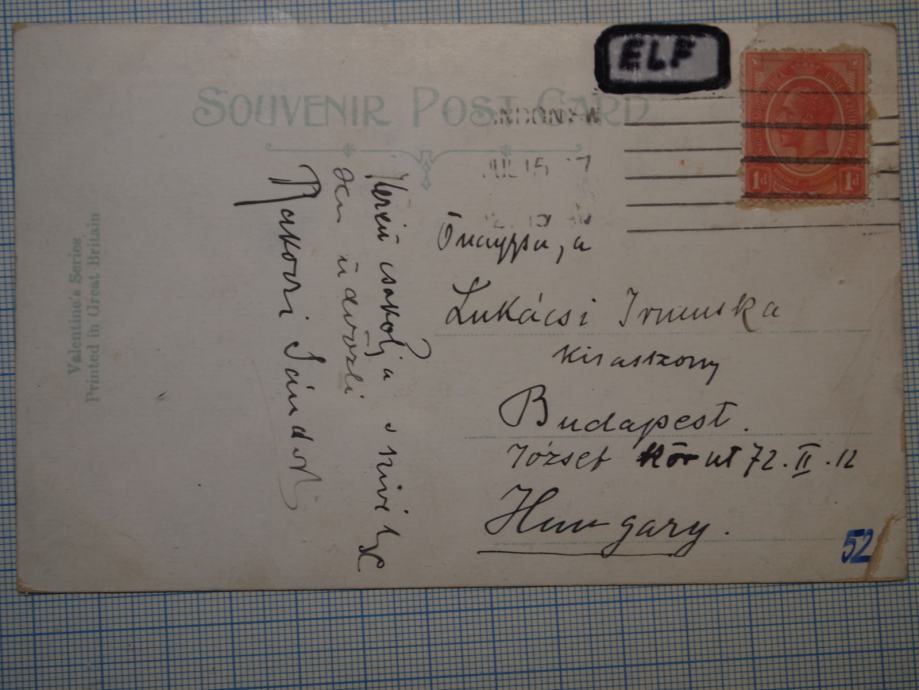 ELF
SOUVENIR POST CARD
JUL 15 7
1d 1d
Valentine's Series
Printed in Great Britain
Kezeit csokolja s szivélye
sen üdvözli
Rakosi Sándor
Őnagysága
Lukácsi Irmuska
kisasszony
Budapest.
József Körut 72. II. 12
Hungary.
52